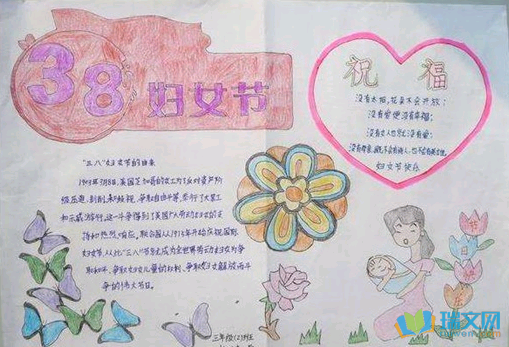 38
妇女节
祝福
没有太阳,花朵不会开放;
没有爱便没有幸福;
没有女人也就没有爱;
没有母亲,既不会有诗人,也不会有英雄。
妇女节快乐
"三.八"妇女节的由来
1909年3月8日,美国芝加哥的女工为了反对资产阶
级压迫、剥削和歧视,争取自由平等,举行了大罢工
和示威游行,这一斗争得到了美国广大劳动妇女的支
持和热烈响应,联合国从1975年开始庆祝国际
妇女节,从此"三八"节日成为全世界劳动妇女为争
取和平、争取妇女儿童的权利、争取妇女解放而斗
争的伟大节日。
节日快乐
三年级(2)班
瑞文网